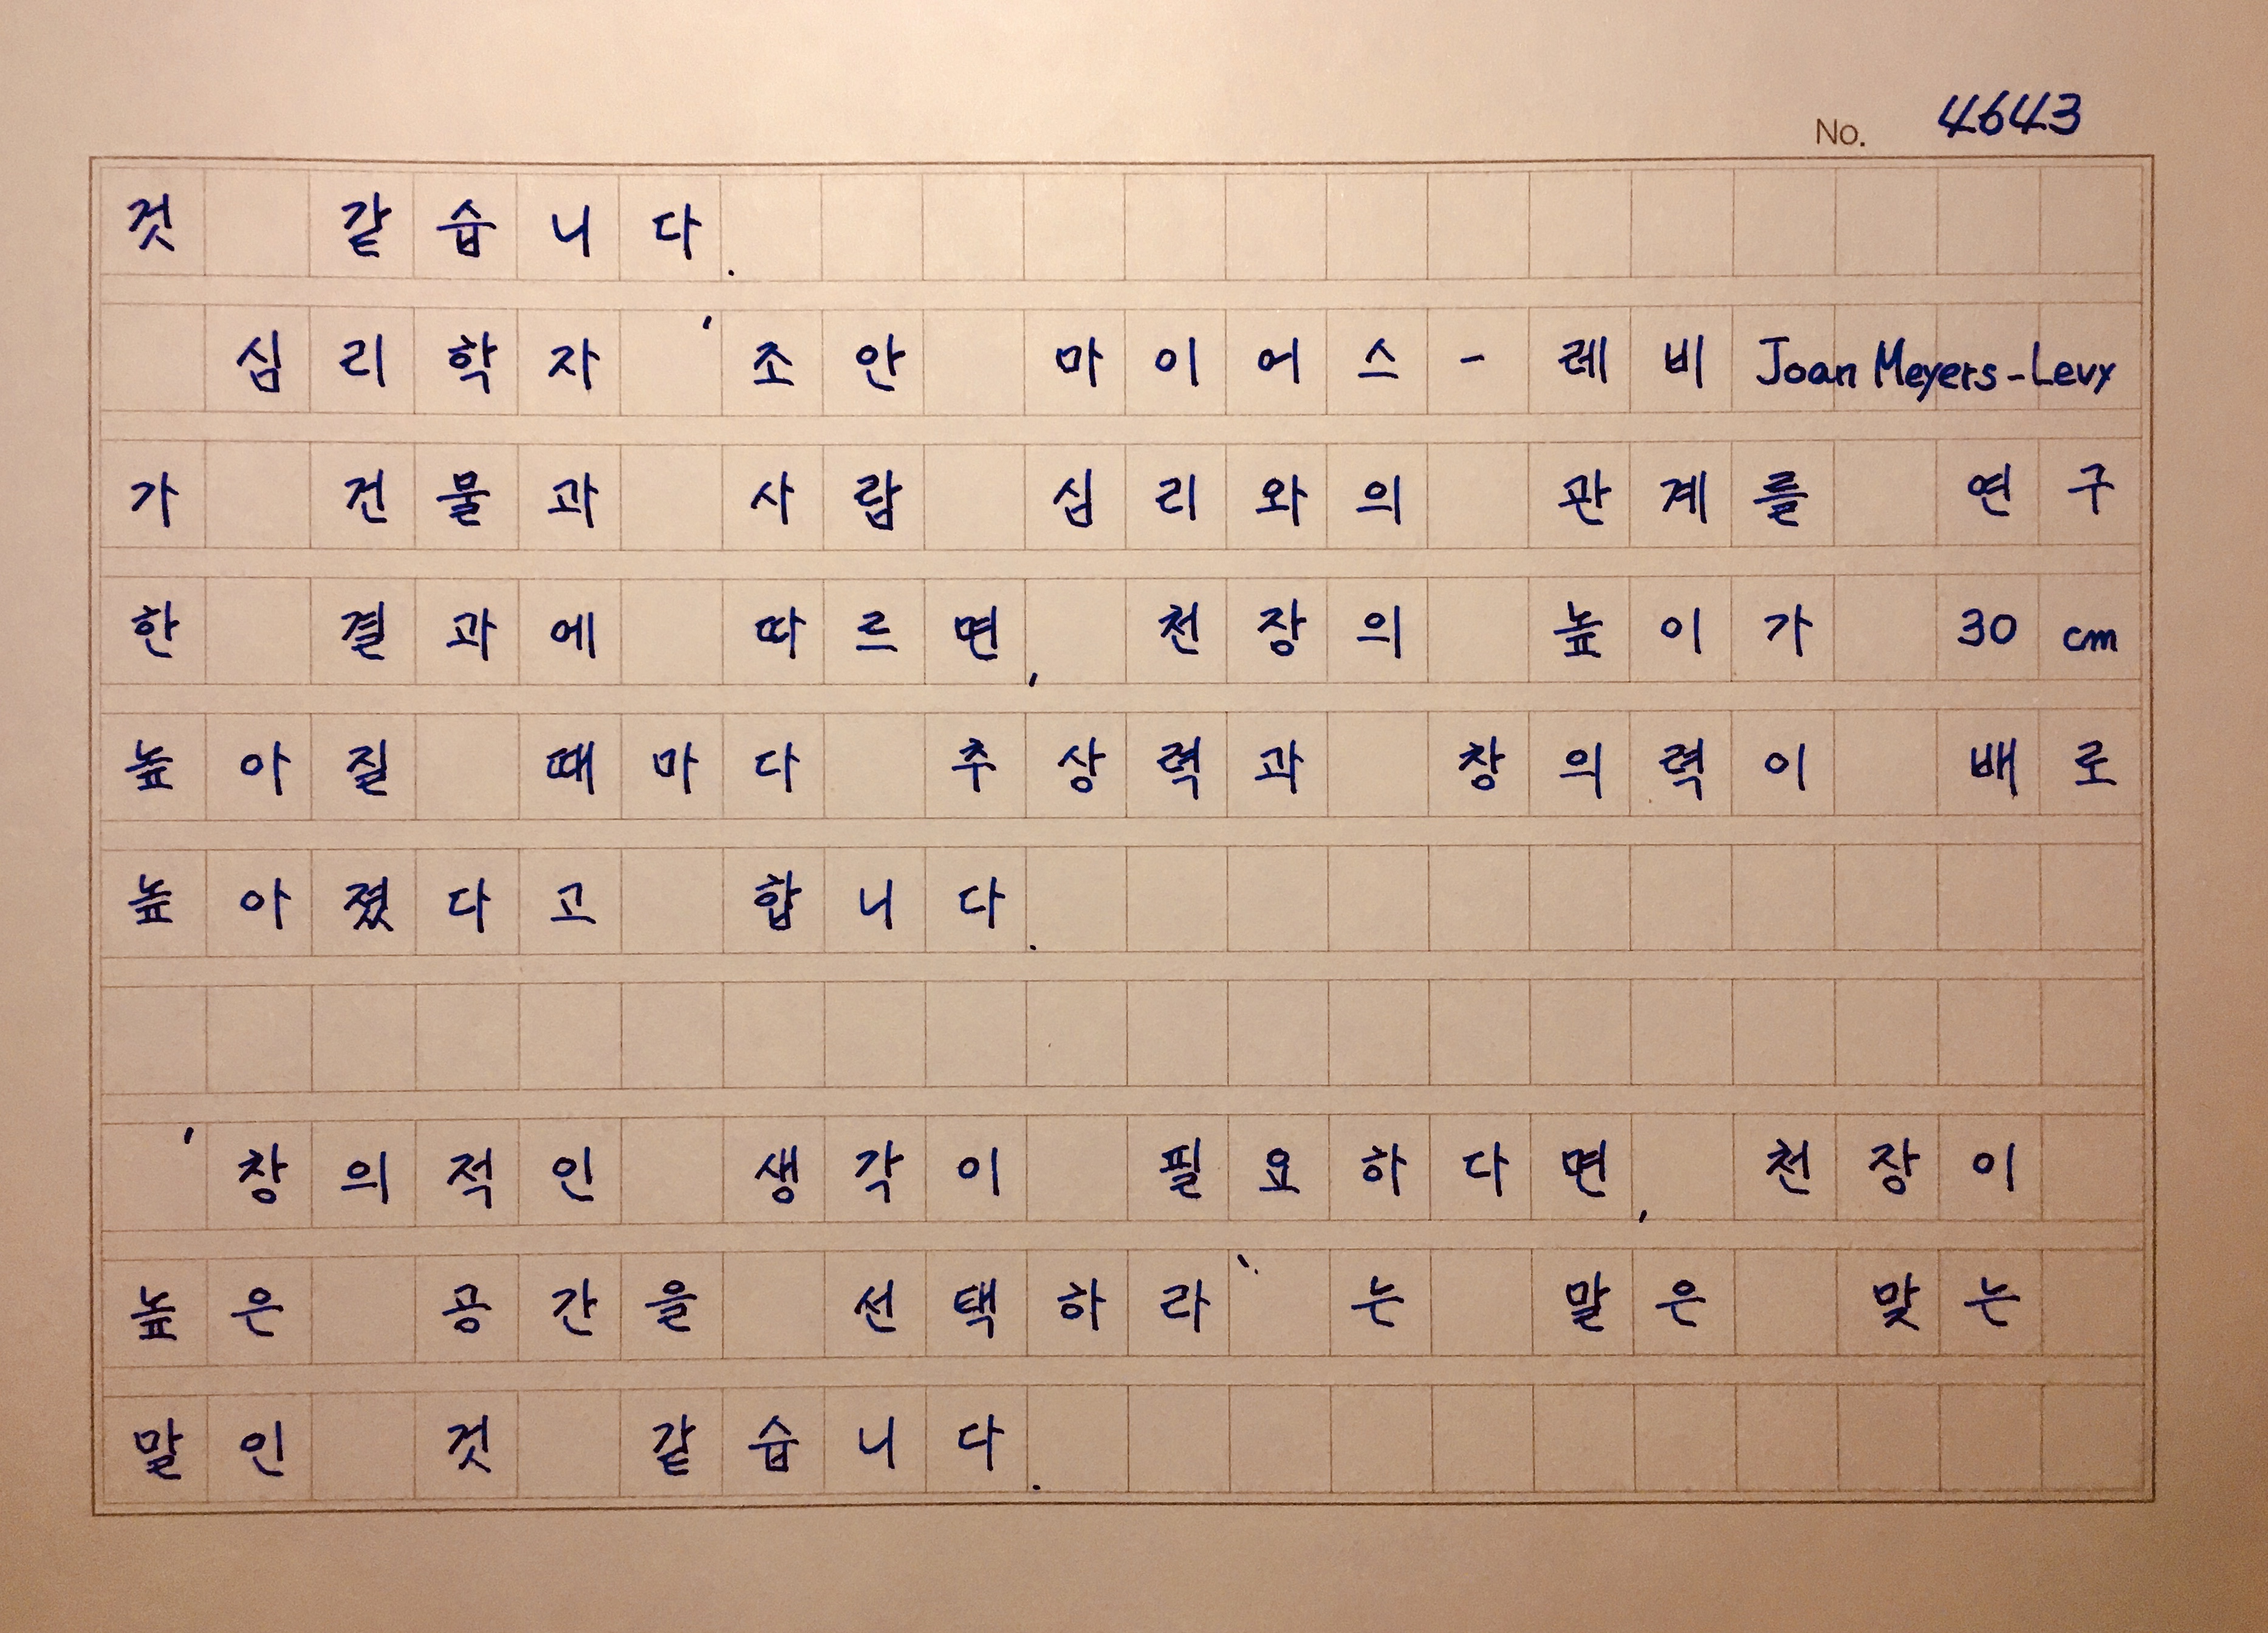 No. 4643
것 같습니다.
심리학자 '조안 마이어스-레비 Joan Meyers-Levy
가 건물과 사람 심리와의 관계를 연구
한 결과에 따르면, 천장의 높이가 30 cm
높아질 때마다 추상력과 창의력이 배로
높아졌다고 합니다.
'창의적인 생각이 필요하다면, 천장이
높은 공간을 선택하라' 는 말은 맞는
말인 것 같습니다.